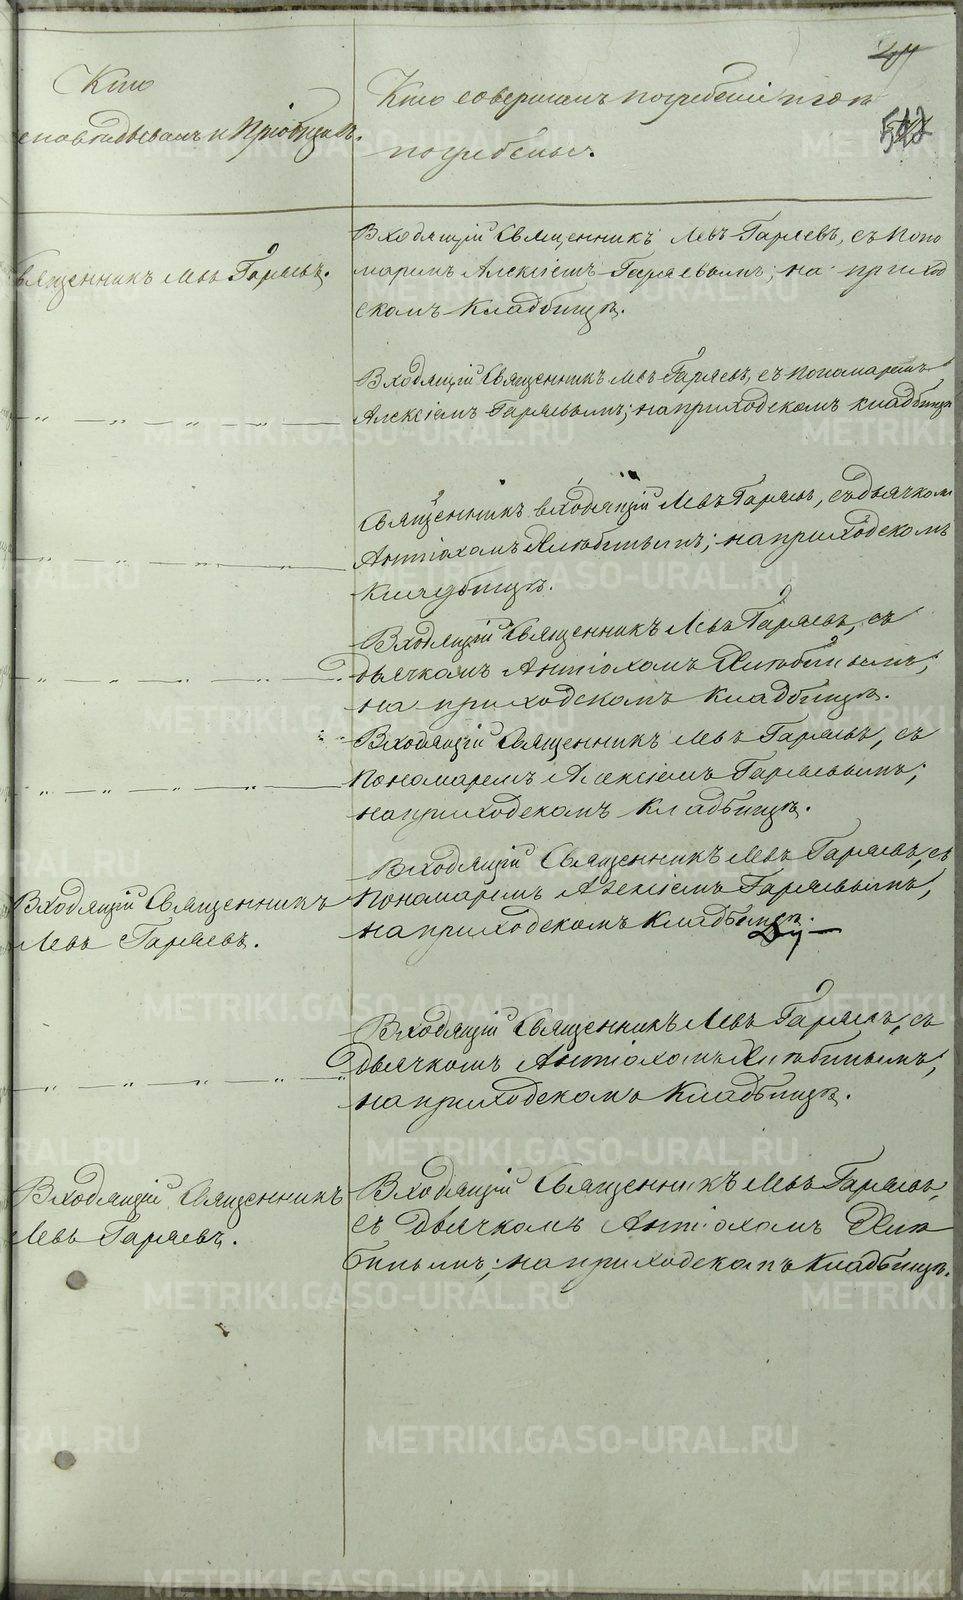 Кто
исповѣдывалъ и Пріобщалъ.
Кто совершалъ погребеніе и гдѣ
погребены.
512
Священникъ Левъ Гаряевъ.
Входящій Священникъ Левъ Гаряевъ, съ Поно
маремъ Алексіемъ Гаряевымъ; на приход
скомъ Кладбищѣ.
— „ — „ — „ — „ —
Входящій Священникъ Левъ Гаряевъ, съ пономаремъ
Алексіемъ Гаряевымъ; на приходскомъ кладбищѣ
— „ — „ — „ — „ —
Священникъ входящій Левъ Гаряевъ, съ дьячкомъ
Антіохомъ Хлюбинымъ; на приходскомъ
Кладбищѣ.
— „ — „ — „ — „ —
Входящій Священникъ Левъ Гаряевъ, съ
дьячкомъ Антіохомъ Хлюбинымъ;
на приходскомъ Кладбищѣ.
— „ — „ — „ — „ —
Входящій Священникъ Левъ Гаряевъ, съ
Пономаремъ Алексіемъ Гаряевымъ;
на приходскомъ Кладбищѣ.
Входящій Священникъ
Левъ Гаряевъ.
Входящій Священникъ Левъ Гаряевъ, съ
Пономаремъ Алексіемъ Гаряевымъ;
на приходскомъ Кладбищѣ.
— „ — „ — „ — „ —
Входящій Священникъ Левъ Гаряевъ, съ
дьячкомъ Антіохомъ Хлюбинымъ;
на приходскомъ Кладбищѣ.
Входящій Священникъ
Левъ Гаряевъ.
Входящій Священникъ Левъ Гаряевъ,
съ Дьячкомъ Антіохомъ Хлю
бинымъ; на приходскомъ Кладбищѣ.
METRIKI.GASO-URAL.RU